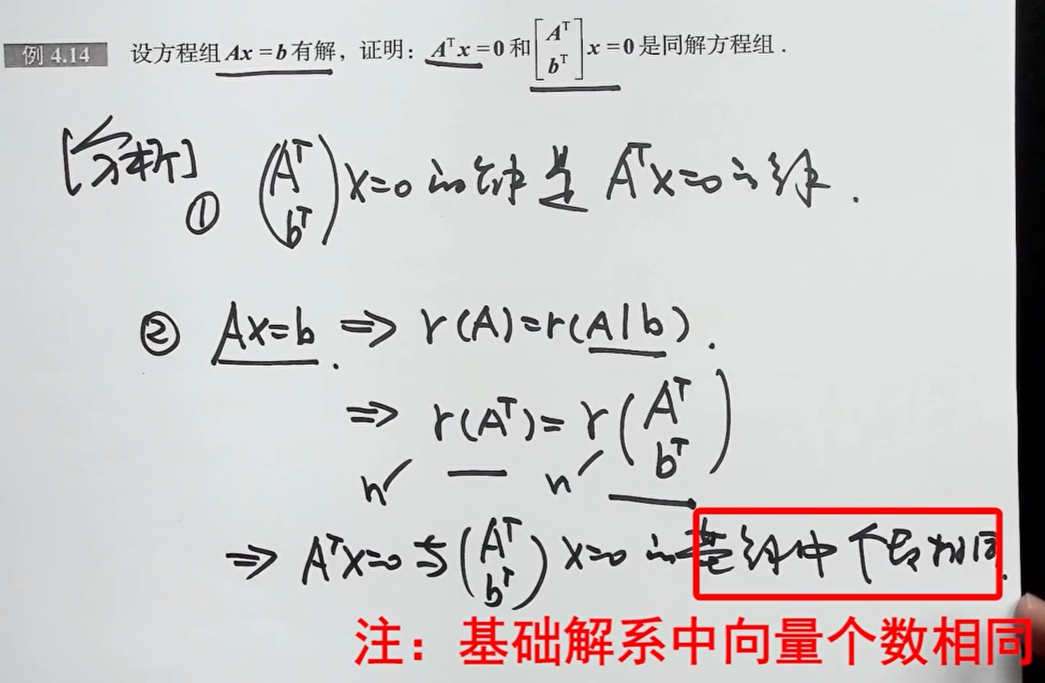 例 4.14 设方程组 Ax = b 有解，证明：Aᵀx = 0 和 [Aᵀ bᵀ] x = 0 是同解方程组．
[分析]
① (Aᵀ bᵀ) x=0 的解是 Aᵀx=0 的解．
② Ax=b ⇒ r(A)=r(A|b)．
⇒ r(Aᵀ)=r(Aᵀ bᵀ)
n✓ n✓
⇒ Aᵀx=0 与 (Aᵀ bᵀ) x=0 的基解中个数相同．
注：基础解系中向量个数相同